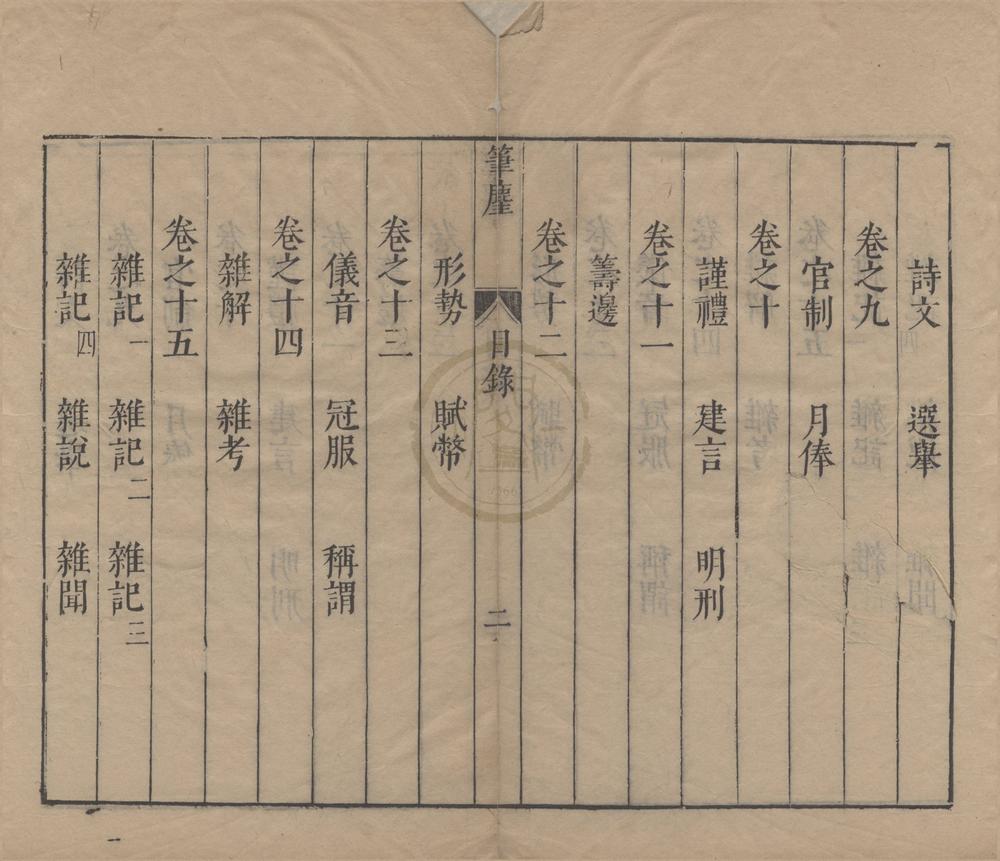 詩文 選舉
卷之九
官制 月俸
卷之十
謹禮 建言 明刑
卷之十一
籌邊
卷之十二
筆麈 目錄 二
形勢 賦幣
卷之十三
儀音 冠服 稱謂
卷之十四
雜解 雜考
卷之十五
雜記一 雜記二 雜記三
雜記四 雜說 雜聞